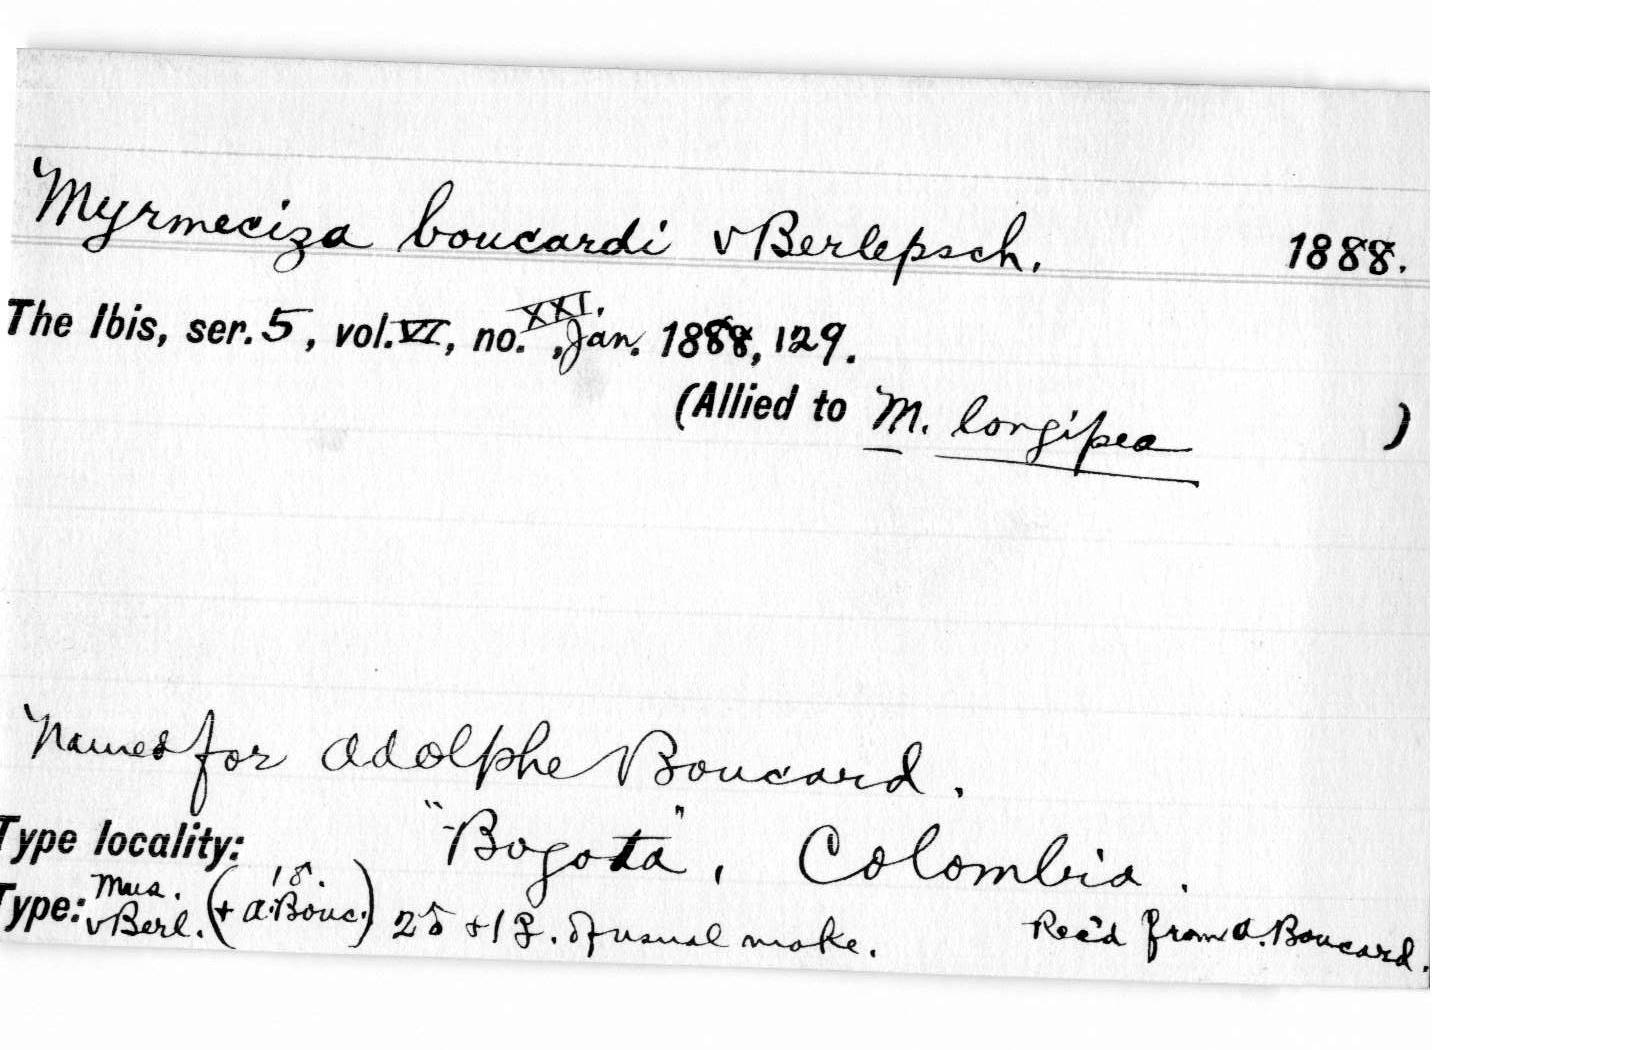 Myrmeciza boucardi vBerlepsch. 1888.
The Ibis, ser. 5, vol. VI, no. XXI., Jan. 1888, 129.
(Allied to M. longipes )
Named for Adolphe Boucard.
Type locality: "Bogota", Colombia.
Type: Mus. vBerl. (+ 1♂. A. Bouc.) 2♂ + 1♀. Of usual make. Rec'd from A. Boucard.